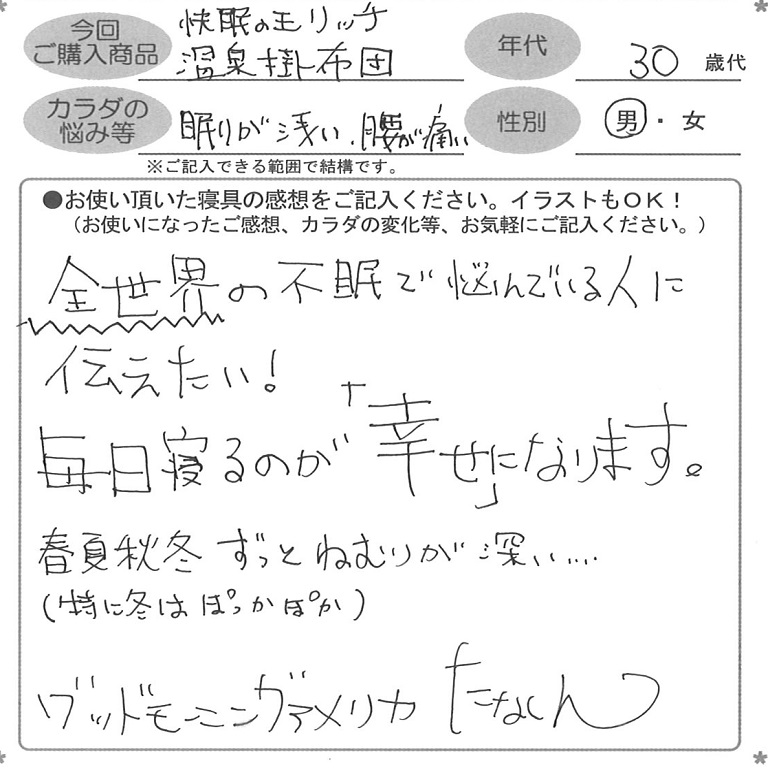 今回
ご購入商品
快眠のモリッチ
温泉掛布団
年代
30 歳代
カラダの
悩み等
眠りが浅い、腰が痛い
性別
男・女
※ご記入できる範囲で結構です。
●お使い頂いた寝具の感想をご記入ください。イラストもOK！
（お使いになったご感想、カラダの変化等、お気軽にご記入ください。）
全世界の不眠で悩んでいる人に
伝えたい！
毎日寝るのが「幸せ」になります。
春夏秋冬ずっとねむりが深い…
(特に冬はぽっかぽか)
グッドモーニングアメリカ たなしん